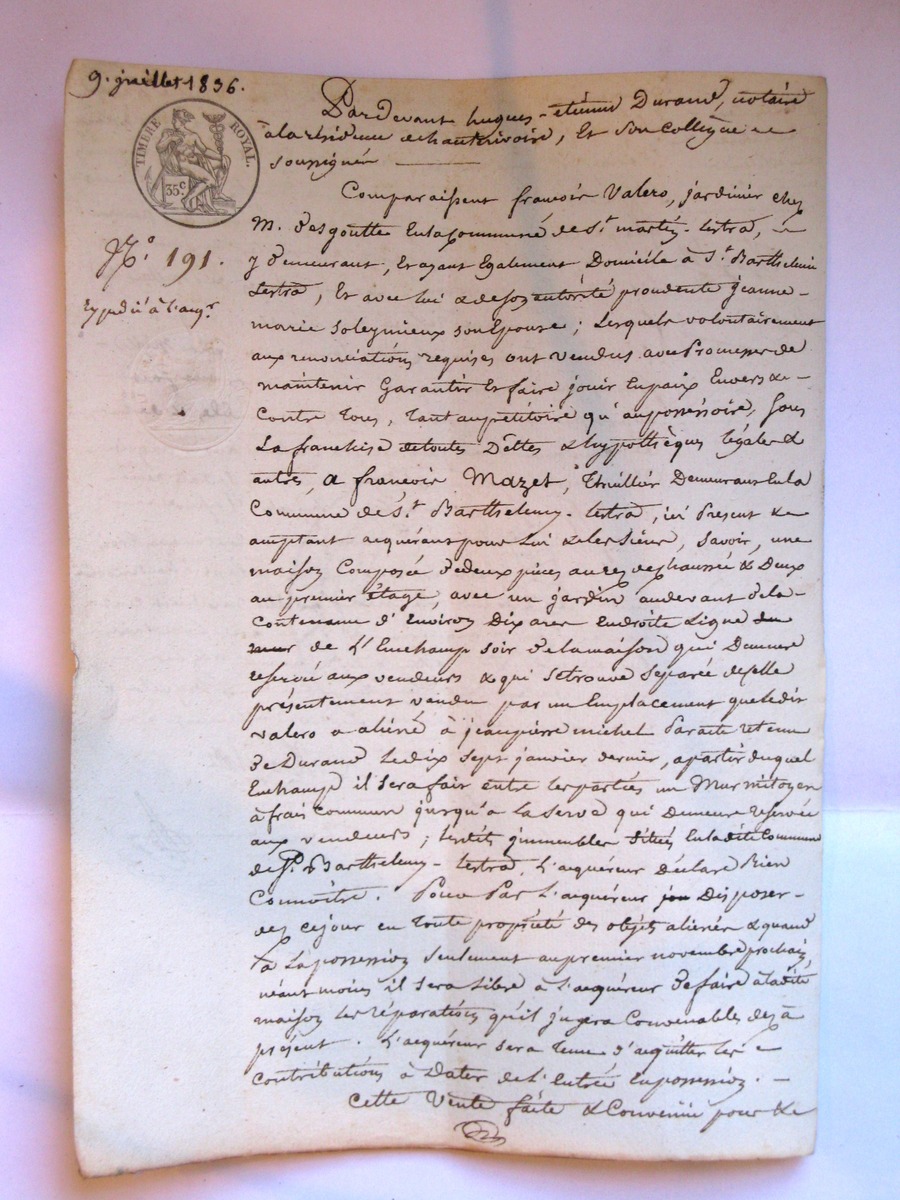 9. juillet 1836.
TIMBRE ROYAL.
35c.
No. 191.
Expédié à l'acqr.
Pardevant hugues-étienne Durand, notaire
à la résidence de hauterivoire, Et Son Collègue
soussignés
Comparaissent françois Valero, jardinier chez
M. Desgoutte En la Commune de St. martin-lestra,
y Demeurant, Et ayant Egalement Domicile à St. Barthelemi
Lestra, Et avec lui & de son autorité procedente jeanne-
marie Soleymieux son Epouse; Lesquels volontairement
aux renonciations requises ont vendus avec Promesse de
maintenir Garantir Et faire jouir En paix Envers &
Contre Tous, tant au petitoire qu'au possessoire, Sous
La franchise de toutes Dettes & hypothèques légales &
autres, a françois Mazet, Thuillier Demeurant En la
Commune de St. Barthelemy-lestra, ici Present &
acceptant acquérant pour Lui & les Siens, Savoir, une
maison Composée de deux pièces au rez de chaussée & Deux
au premier étage, avec un jardin au devant de la
Contenance d'Environ Dix ares En droite Ligne
de L'Enchamp soir de la maison qui Demeure
reservée aux vendeurs & qui se trouve séparée de celle
présentement vendue par un Emplacement que ledit
Valero a aliéné à jean pierre michel Par acte reçu
De Durand Le dix sept janvier dernier, a partir duquel
Enchamp il sera fait entre les parties un Mur mitoyen
à frais Commun jusqu'a la serve qui Demeure reservée
aux vendeurs; lesdits immeubles Situés En ladite Commune
de St. Barthelemy-lestra, L'acquéreur Déclare Bien
Connoître. Pour Par L'acquéreur Disposer
des cejour en Toute propriété des objets aliénés & quand
à La possession Seulement au premier novembre prochain,
néant moins il sera Libre à L'acquéreur De faire à ladite
maison les réparations qu'il jugera Convenables dès à
présent. L'acquéreur sera Tenu d'acquitter les
contributions à Dater de L'Entrée En possession.
Cette Vente faite & Convenue pour &